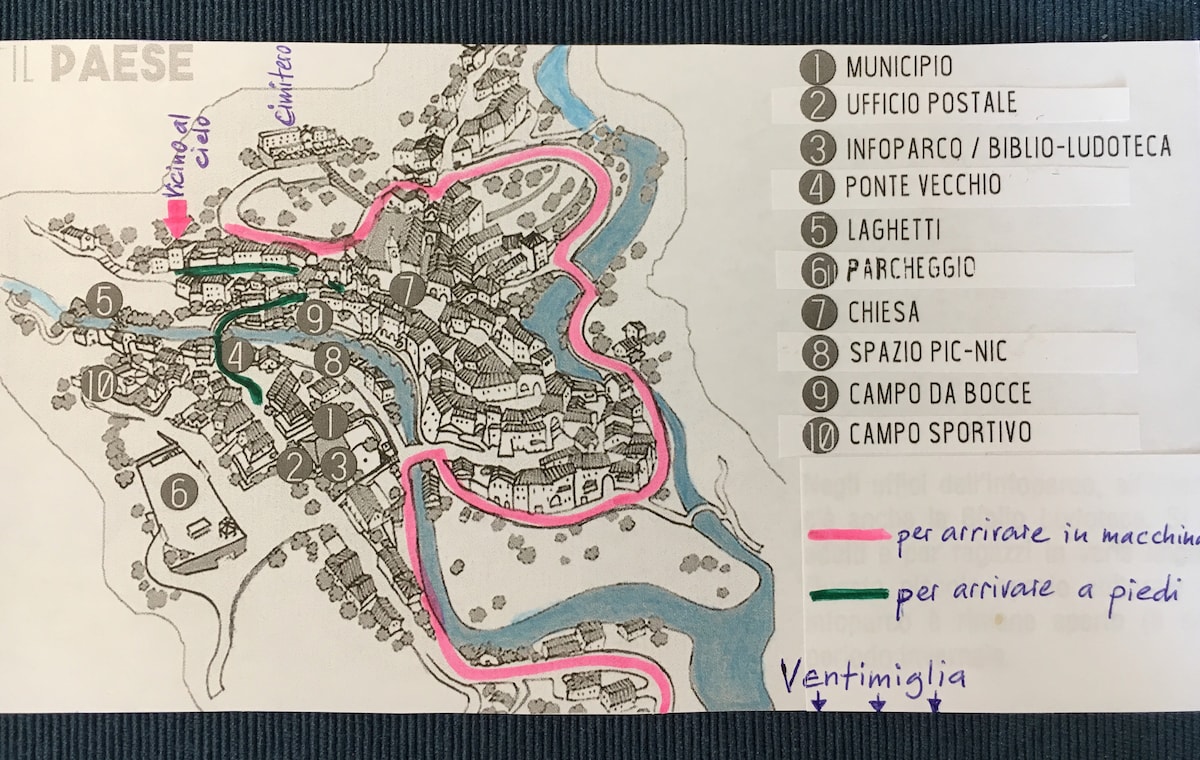 IL PAESE
Vicino al
cielo
Cimitero
5
10
4
9
7
8
1
2
3
6
1 MUNICIPIO
2 UFFICIO POSTALE
3 INFOPARCO / BIBLIO-LUDOTECA
4 PONTE VECCHIO
5 LAGHETTI
6 PARCHEGGIO
7 CHIESA
8 SPAZIO PIC-NIC
9 CAMPO DA BOCCE
10 CAMPO SPORTIVO
per arrivare in macchina
per arrivare a piedi
Ventimiglia